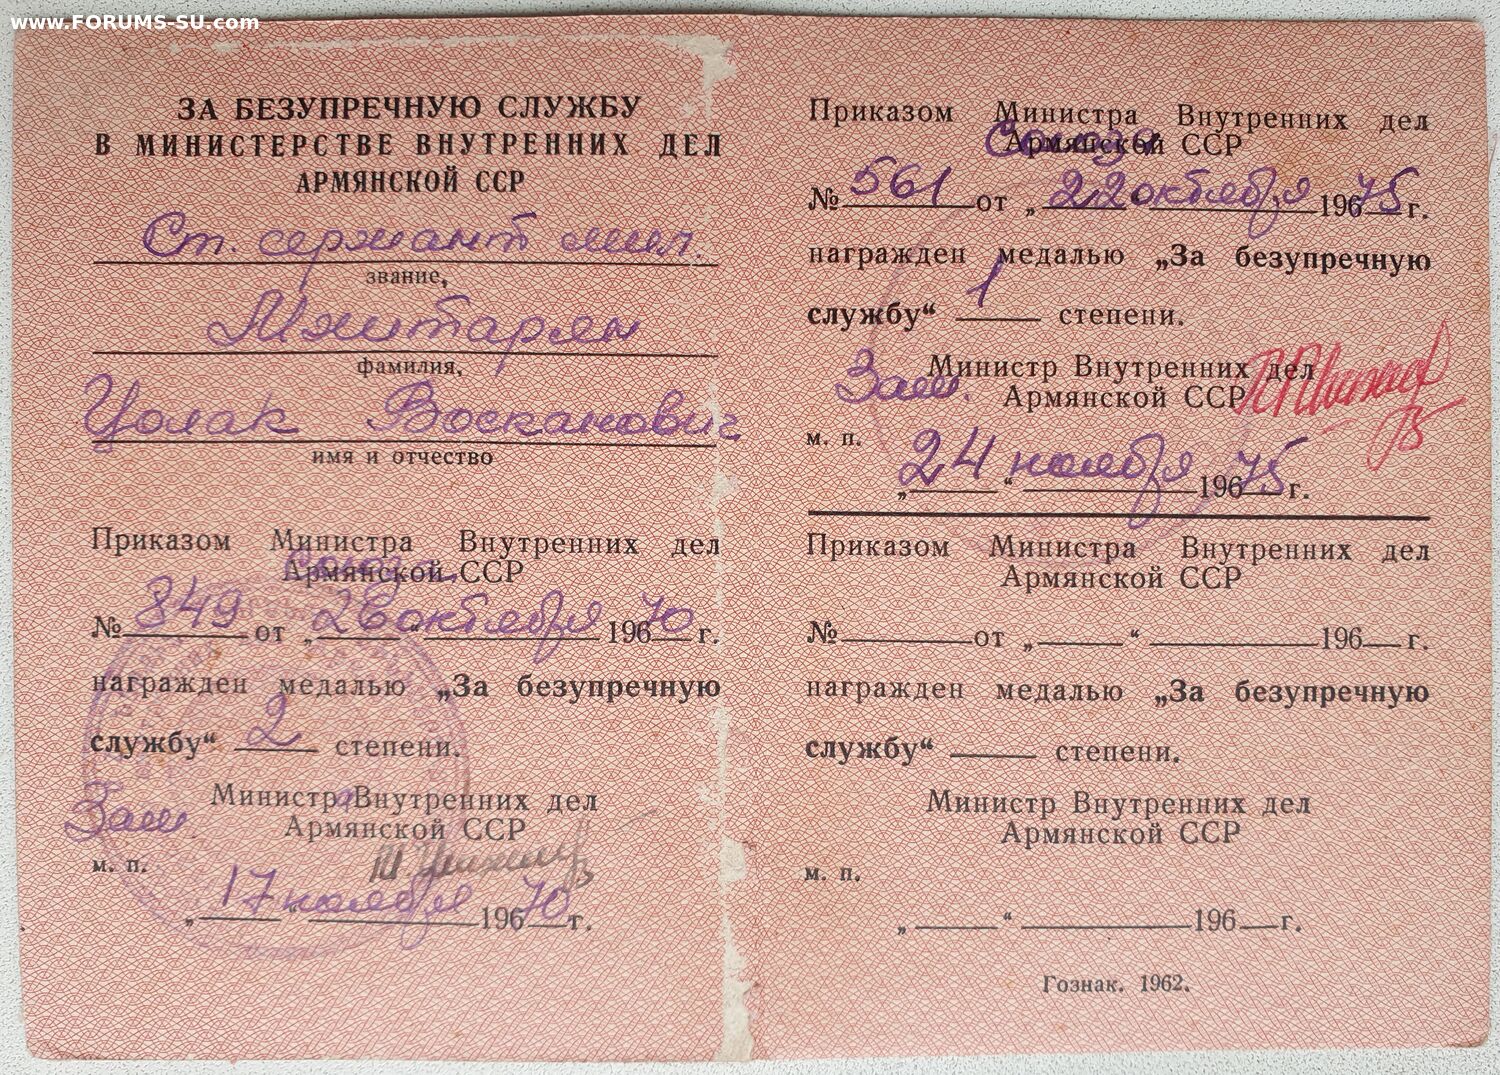 www.FORUMS-SU.com
ЗА БЕЗУПРЕЧНУЮ СЛУЖБУ
В МИНИСТЕРСТВЕ ВНУТРЕННИХ ДЕЛ
АРМЯНСКОЙ ССР
Ст. сержант мил.
звание,
Мхитарян
фамилия,
Цолак Восканович
имя и отчество
Приказом Министра Внутренних дел
Союза
Армянской ССР
№ 849 от „26 “ октября 196 70 г.
награжден медалью „За безупречную
службу“ 2 степени.
Зам. Министр Внутренних дел
Армянской ССР
м. п.
„17 “ ноября 196 70 г.
Приказом Министра Внутренних дел
Союза
Армянской ССР
№ 561 от „22 октября 196 75 г.
награжден медалью „За безупречную
службу“ 1 степени.
Зам. Министр Внутренних дел
Армянской ССР
м. п.
„24 “ ноября 196 75 г.
Приказом Министра Внутренних дел
Армянской ССР
№ от „ “ 196 г.
награжден медалью „За безупречную
службу“ степени.
Министр Внутренних дел
Армянской ССР
м. п.
„ “ 196 г.
Гознак. 1962.